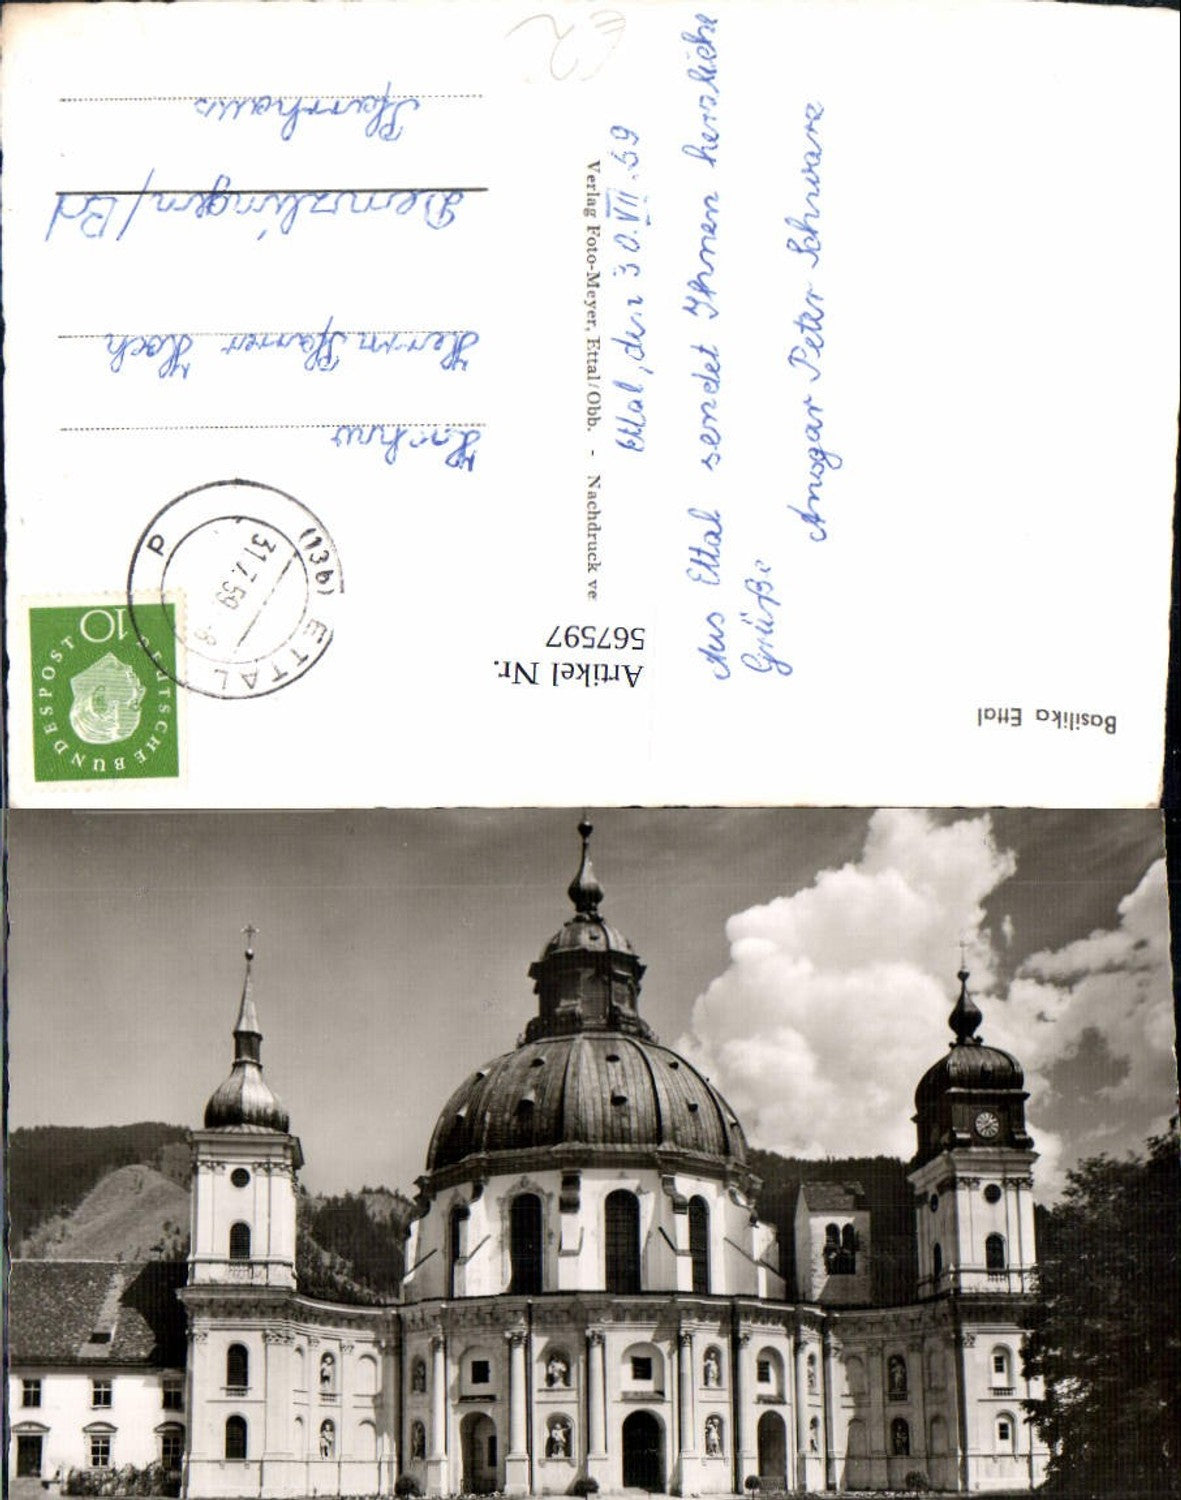 Basilika Ettal
Ettal, den 30.VII.59
Aus Ettal sendet Ihnen herzliche
Grüße
Ansgar Peter Schwarz
Verlag Foto-Meyer, Ettal/Obb. - Nachdruck ve
Artikel Nr.
567597
DEUTSCHE BUNDESPOST
10
(13b) ETTAL
31.7.59
P
Hochw
Herrn Pfarrer Koch
Denzlingen/
Pfarrhaus